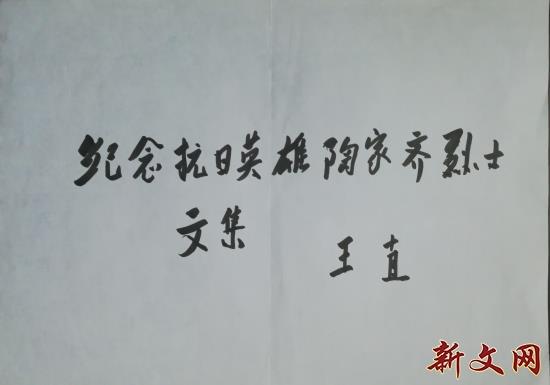 纪念抗日英雄陶家齐烈士
文集
王直
新文网